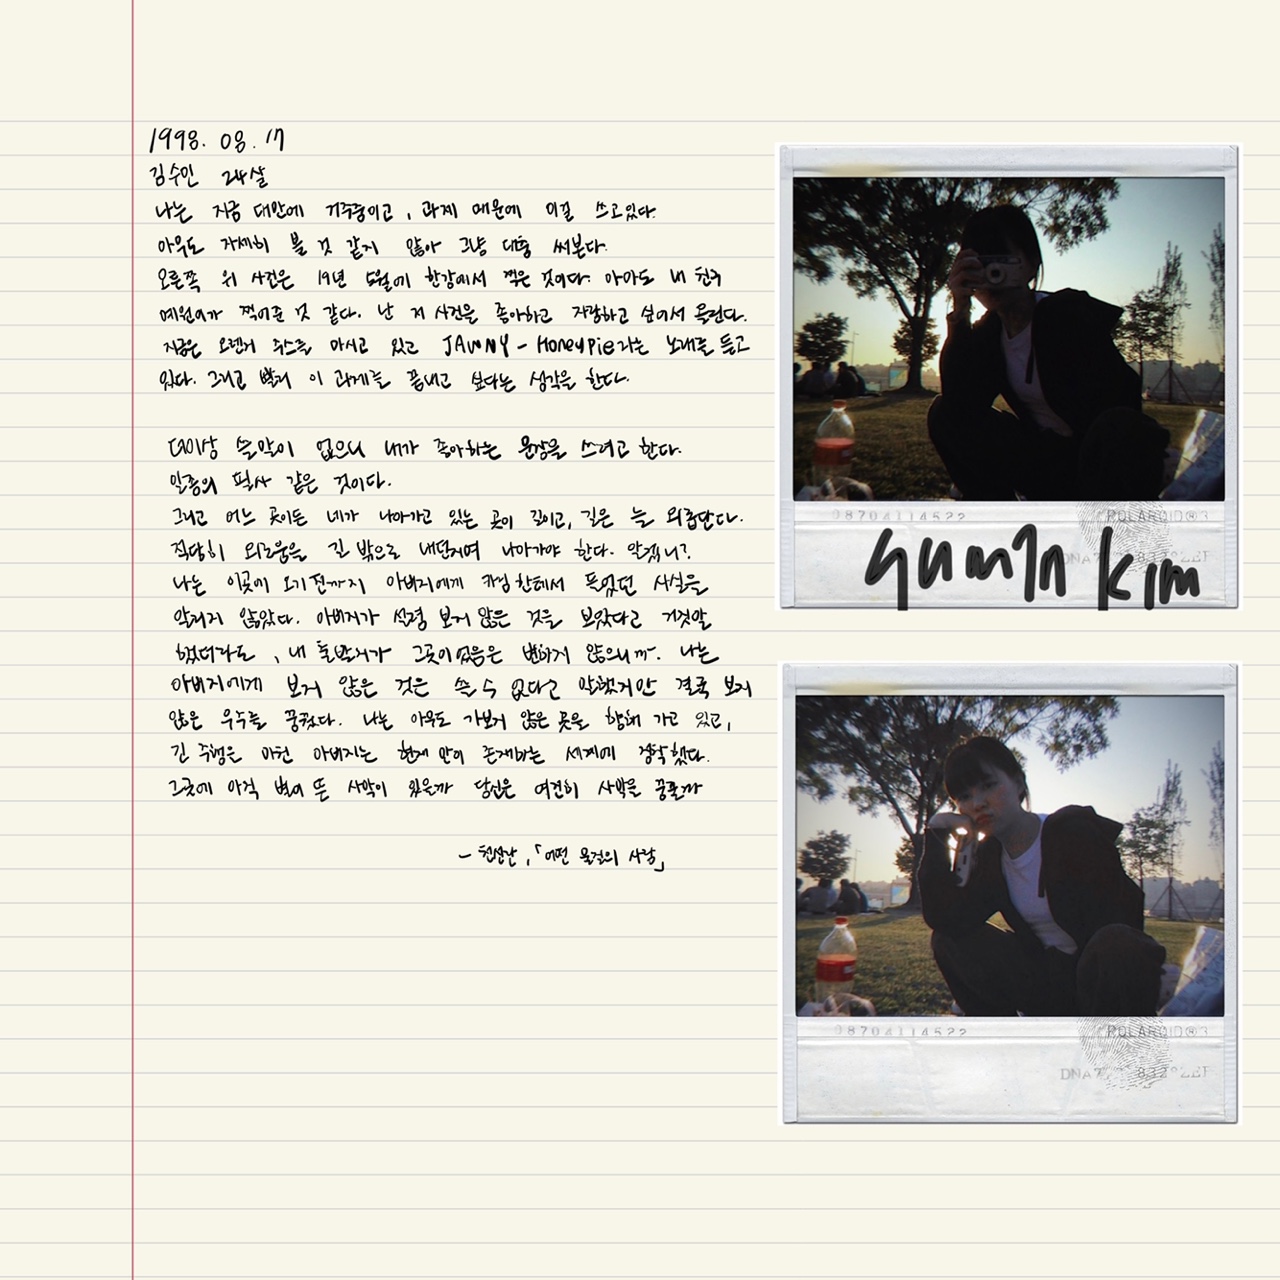 1998. 08. 17
김수인 24살
나는 지금 대만에 거주중이고, 과제 때문에 이걸 쓰고있다.
아무도 자세히 볼 것 같지 않아 그냥 대충 써본다.
오른쪽 위 사진은 19년 5월에 한강에서 찍은 것이다. 아마도 내 친구
예원이가 찍어준 것 같다. 난 저 사진을 좋아하고 자랑하고 싶어서 올린다.
지금은 오렌지 주스를 마시고 있고 JAWNY - Honeypie라는 노래를 듣고
있다. 그리고 빨리 이 과제를 끝내고 싶다는 생각을 한다.
더이상 쓸말이 없으니 내가 좋아하는 문장을 쓰려고 한다.
일종의 필사 같은 것이다.
그리고 어느 곳이든 네가 나아가고 있는 곳이 길이고, 길은 늘 외롭단다.
적당히 외로움을 길 밖으로 내던지며 나아가야 한다. 알겠니?
나는 이곳에 오기 전까지 아버지에게 카잉한테서 들었던 사실을
알리지 않았다. 아버지가 설령 보지 않은 것을 보았다고 거짓말
했더라도, 내 출발지가 그곳이었음은 변하지 않으니까. 나는
아버지에게 보지 않은 것은 쓸 수 없다고 말했지만 결국 보지
않은 우주를 꿈꿨다. 나는 아무도 가보지 않은 곳을 향해 가고 있고,
긴 수행을 마친 아버지는 현재 만이 존재하는 세계에 정착했다.
그곳에 아직 별이 뜬 사막이 있을까 당신은 여전히 사막을 꿈꿀까
- 천선란, 「어떤 물질의 사랑」
Sumin Kim
08704114522
POLAROID®3
08704114522
POLAROID®3